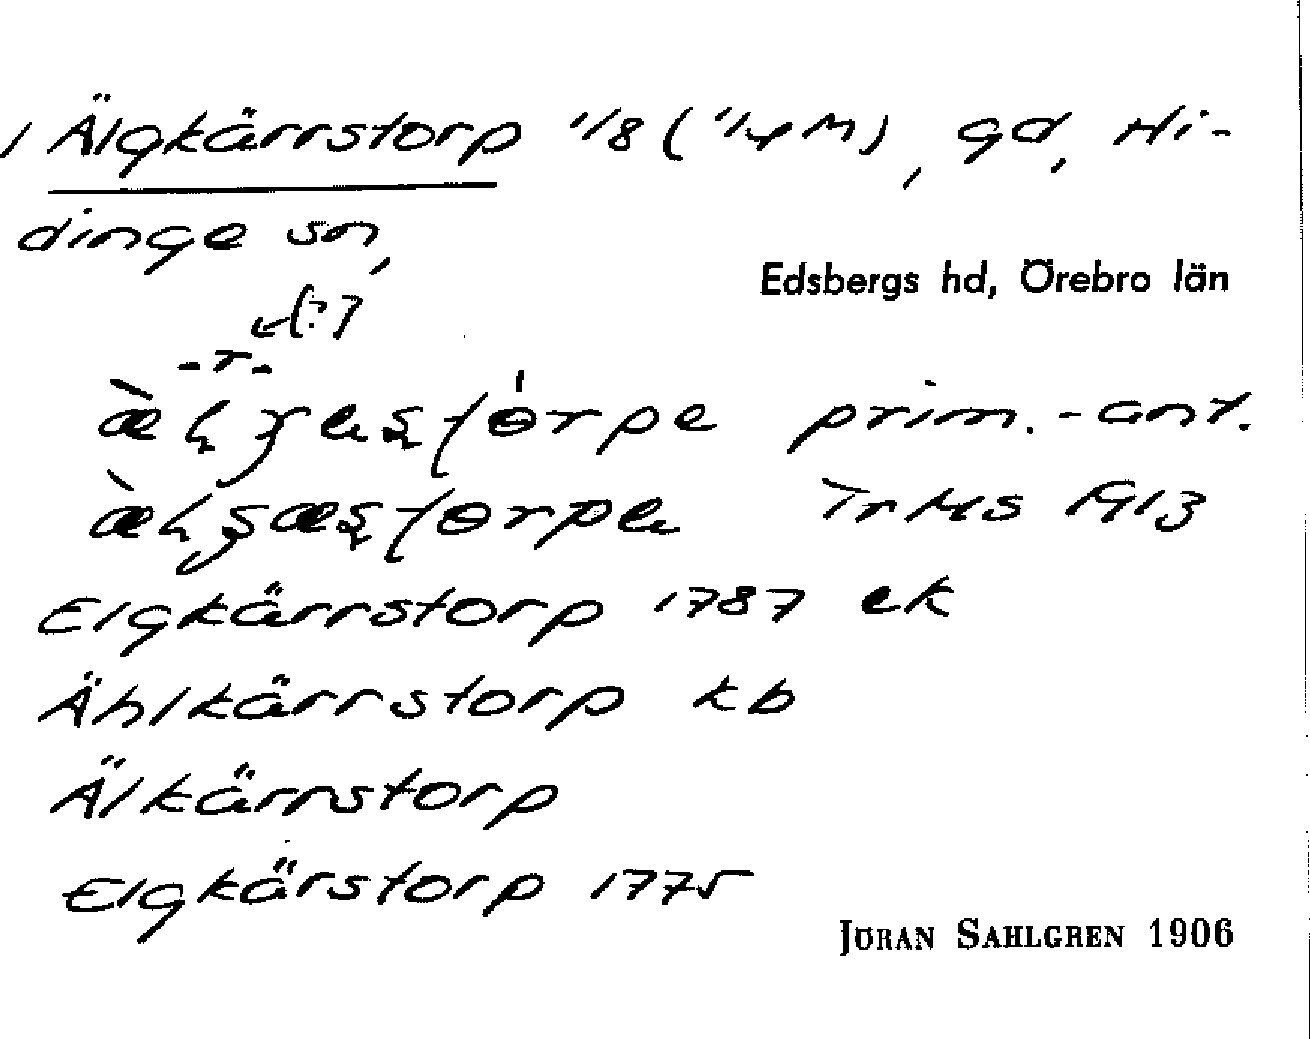 / Älgkärrstorp 1/8 (1/4 M), gd, Hi-
dinge sn,
Edsbergs hd, Örebro län
(?)
-r-
prim.-ant.
ÏrHS 1913
Elgkärrstorp 1787 ek
Ählkärrstorp kb
Älkärrstorp
Elgkärstorp 1775
JÖRAN SAHLGREN 1906